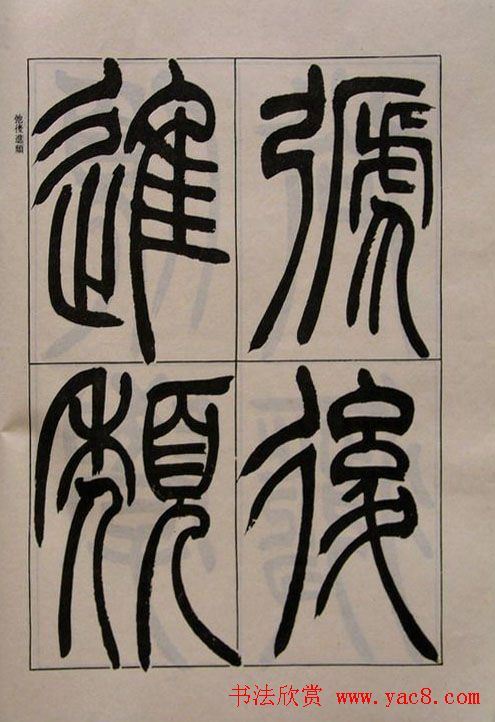 弛後
進頹
弛後進頹
书法欣赏 www.yac8.com